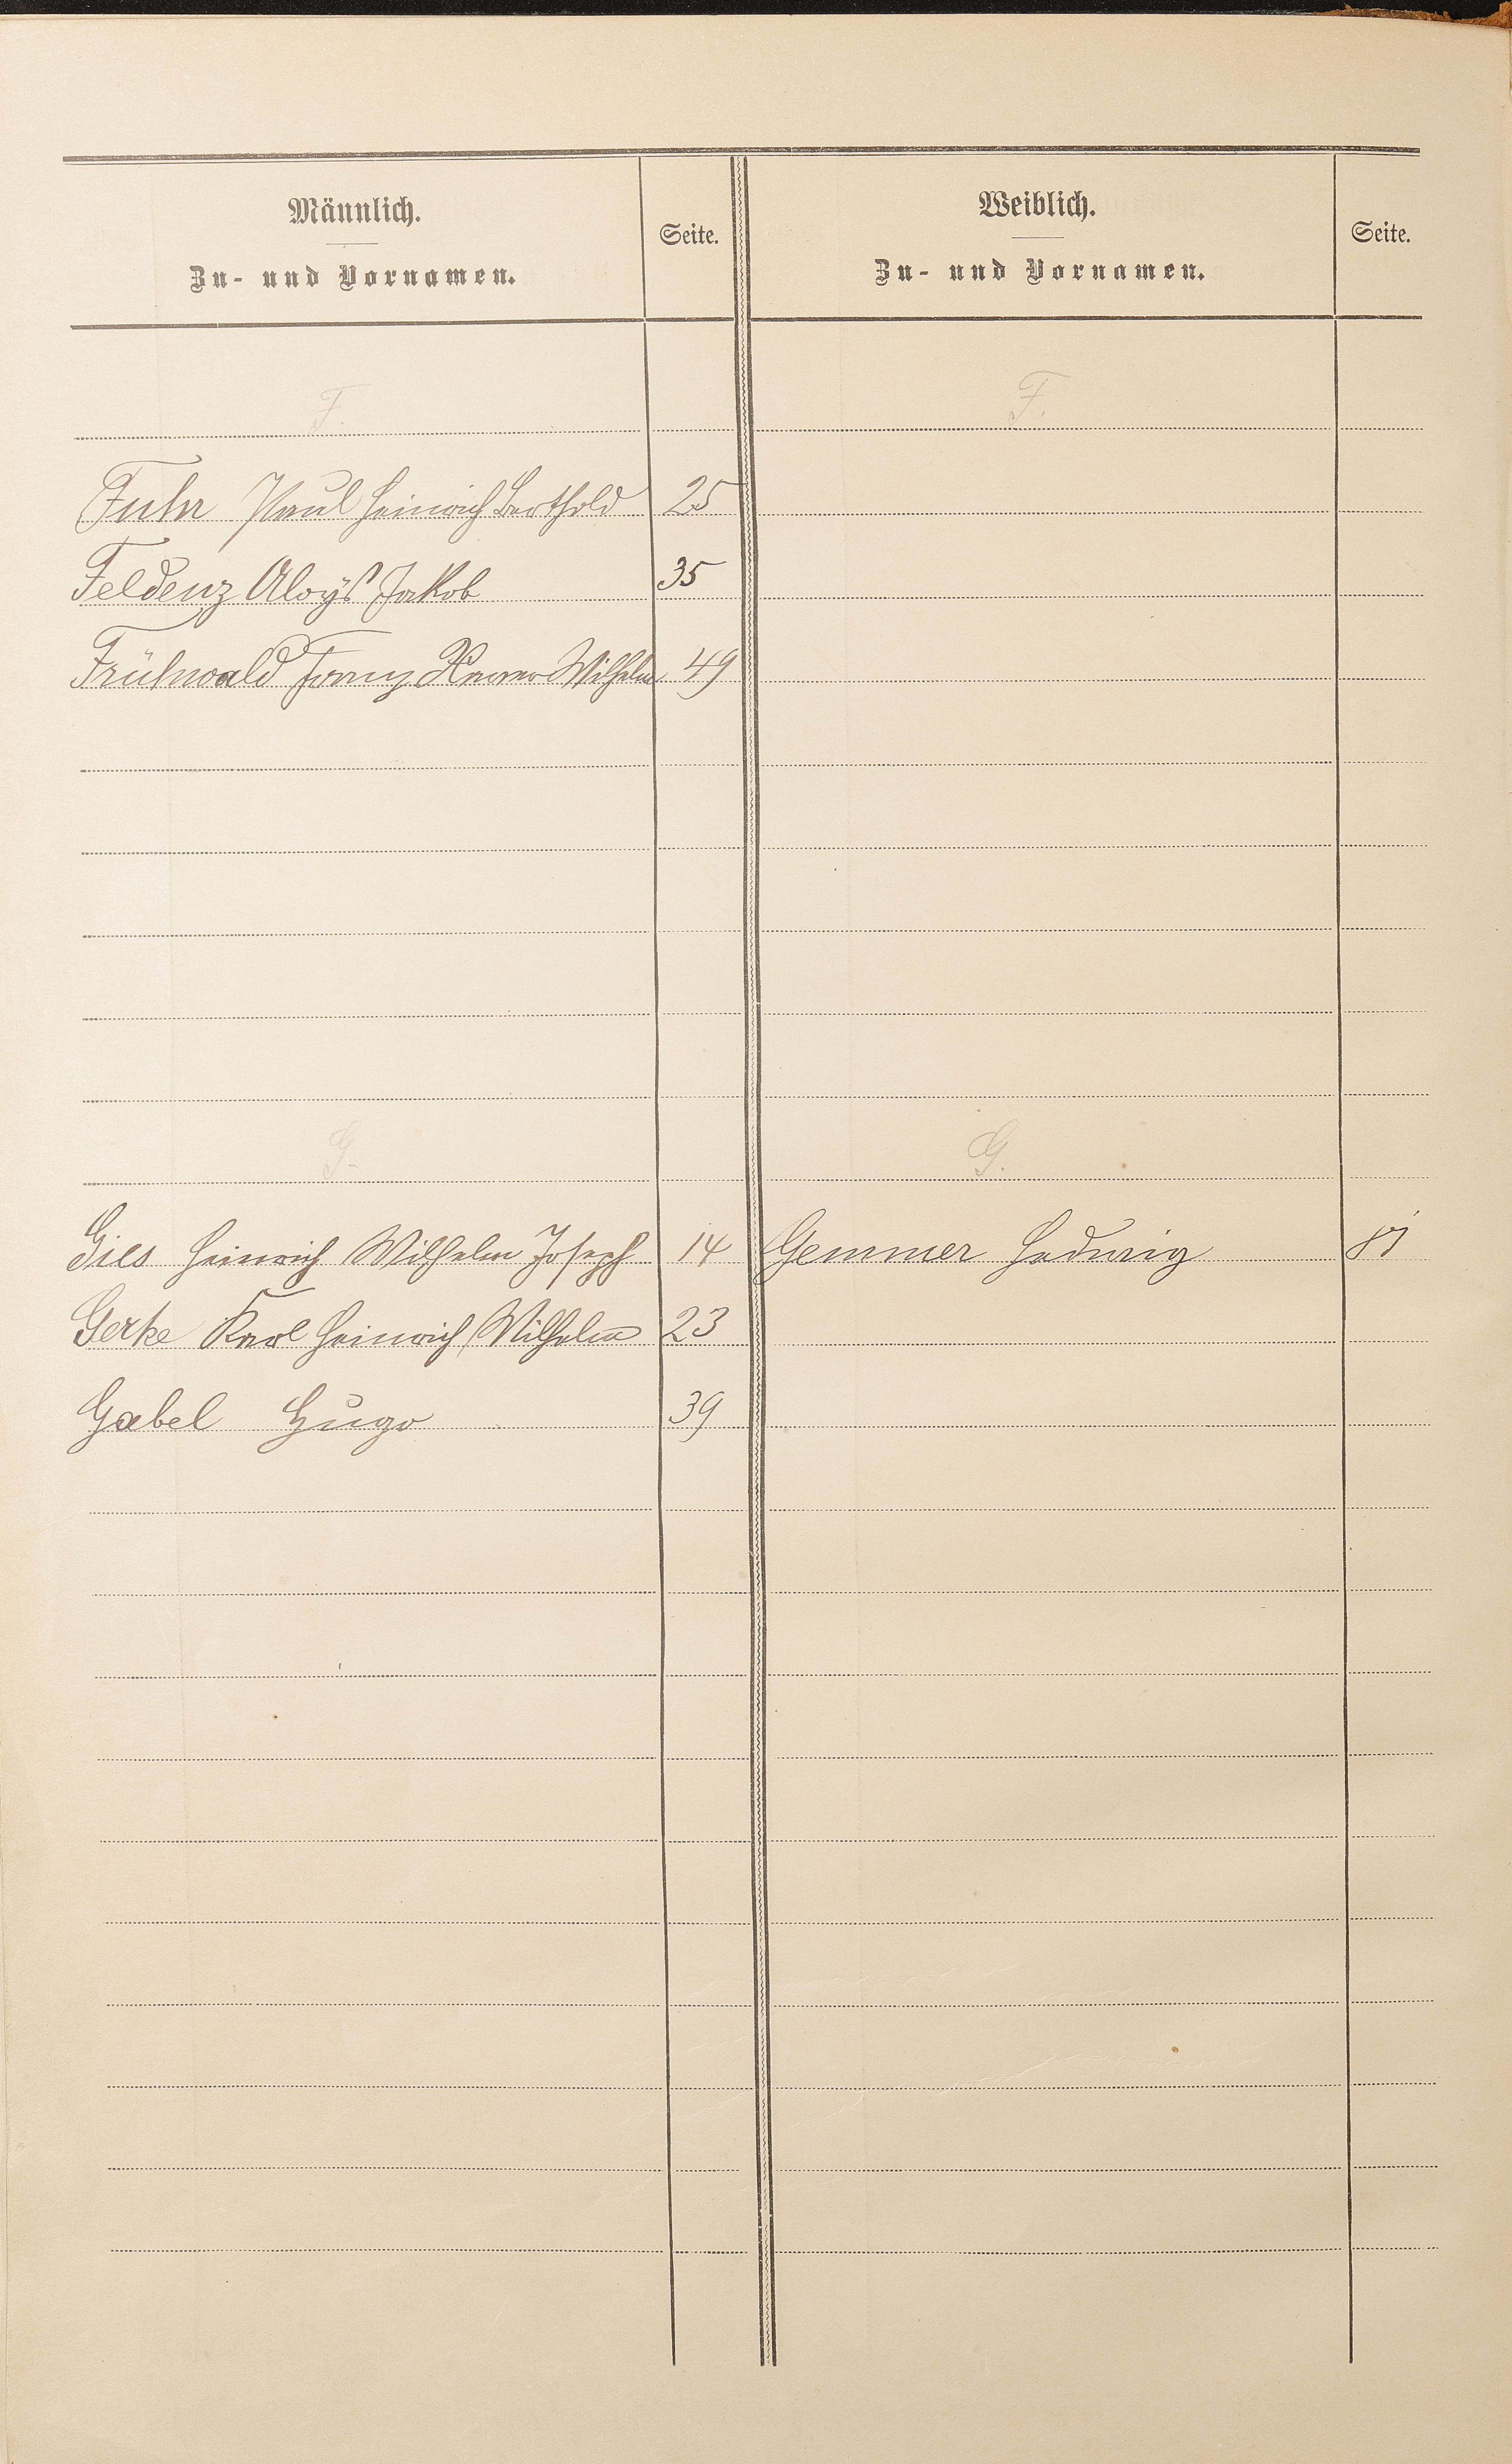 Männlich.
Zu- und Vornamen.
Seite.
Weiblich.
Zu- und Vornamen.
Seite.
F.
F.
Fuhr Paul Heinrich Berthold 25
Feldenz Aloÿs Jakob 35
Frühwald Franz Wilhelm 49
G.
G.
Gies Heinrich Wilhelm Joseph 14 Gemmer Hedwig
Gerke Karl Heinrich Wilhelm 23
Gabel Hugo 39